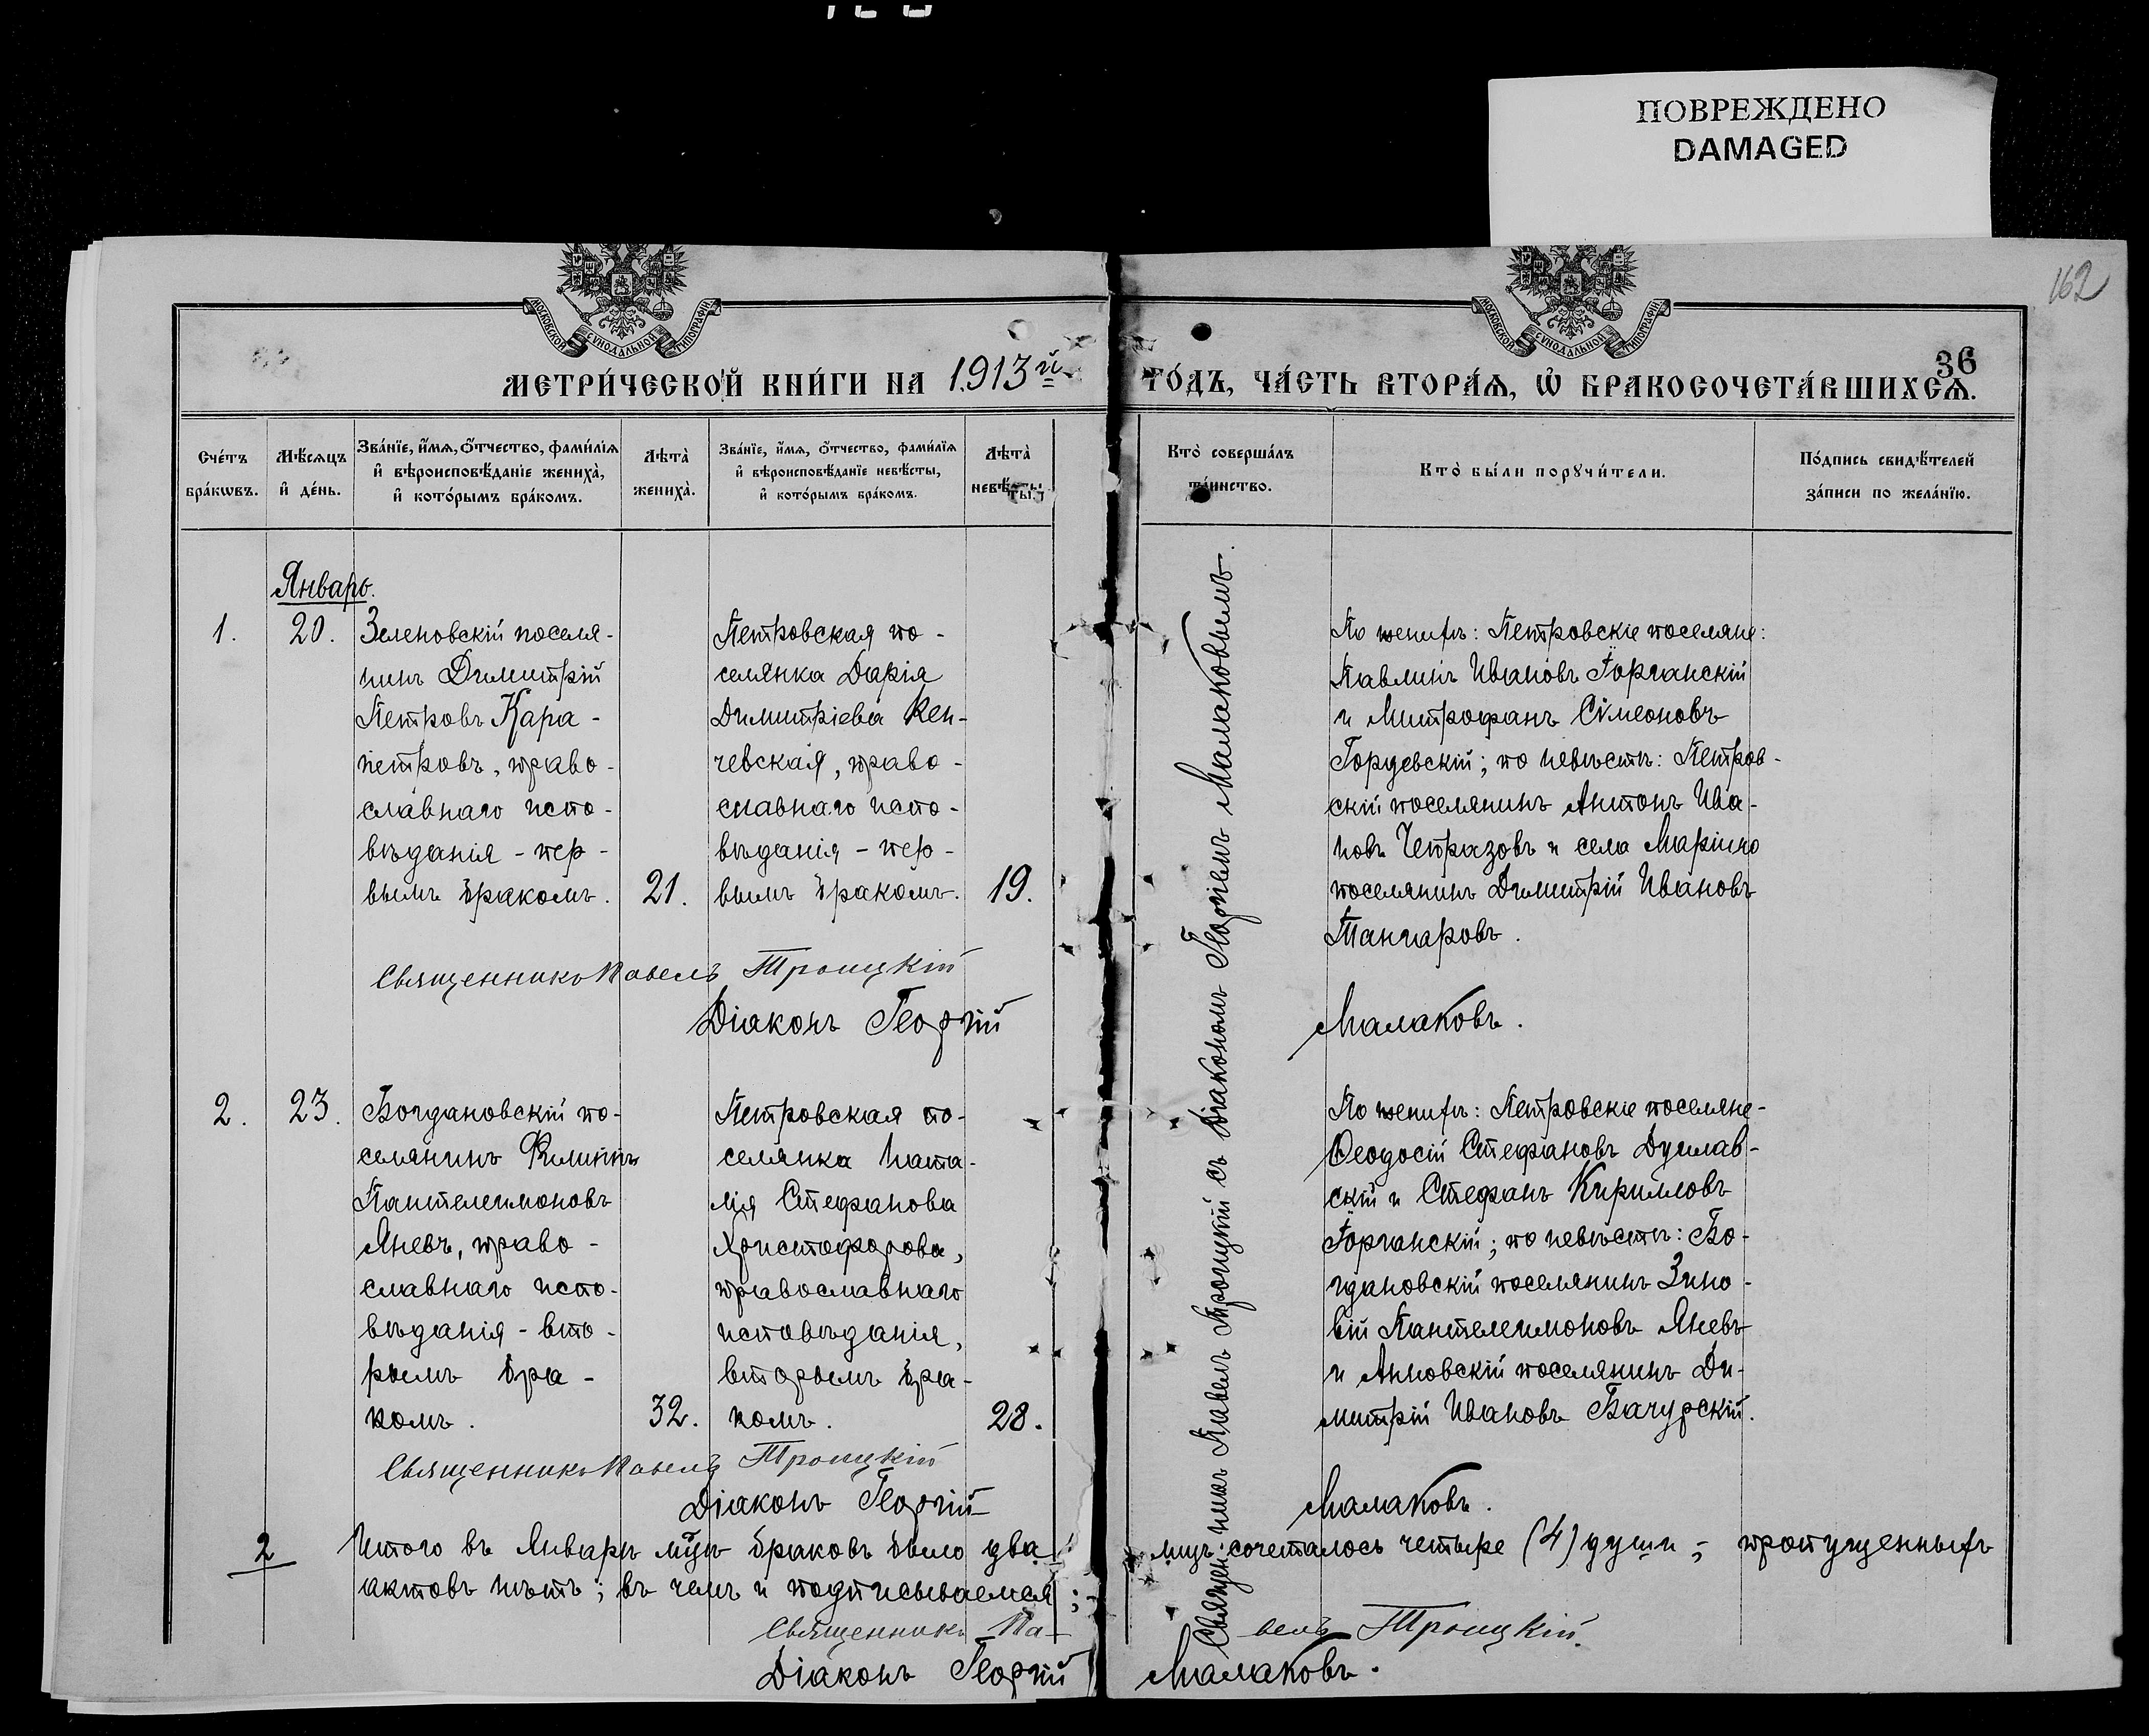 ПОВРЕЖДЕНО
DAMAGED
162
36
МОСКОВСКОЙ СУНОДАЛЬНОЙ ТИПОГРАФІИ
МОСКОВСКОЙ СУНОДАЛЬНОЙ ТИПОГРАФІИ
МЕТРИ́ЧЕСКОЙ КНИ́ГИ НА 1913й ГО́ДЪ, ЧА́СТЬ ВТОРА́Я, Ѡ БРАКОСОЧЕТА́ВШИХСЯ.
Сче́тъ бра́кѡвъ.
Мѣ́сяцъ и де́нь.
Зва́нїе, и́мя, о́тчество, фами́лїя и вѣроисповѣ́данїе жениха̀, и кото́рымъ бра́комъ.
Лѣта̀ жениха̀.
Зва́нїе, и́мя, о́тчество, фами́лїя и вѣроисповѣ́данїе невѣ́сты, и кото́рымъ бра́комъ.
Лѣта̀ невѣ́сты.
Кто̀ соверша́лъ та́инство.
Кто̀ бы́ли порꙋчи́тели.
По́дпись свидѣ́телей за́писи по жела́нїю.
Январь.
1.
20.
Зеленовскій поселя-
нинъ Димитрій
Петровъ Кара-
петровъ, право-
славнаго испо-
вѣданія - пер-
вымъ бракомъ.
21.
Петровская по-
селянка Дарія
Димитріева Кен-
чевская, право-
славнаго испо-
вѣданія - пер-
вымъ бракомъ.
19.
Священникъ Павелъ Троицкій
Діаконъ Георгій Малаковъ.
Священникъ Павелъ Троицкій съ діакономъ Георгіемъ Малаковымъ.
По женихѣ: Петровскіе поселяне:
Павлинъ Ивановъ Горганскій
и Митрофанъ Сімеоновъ
по невѣстѣ: Петров-
скій поселянинъ Антонъ Ива-
новъ Четразовъ и села Маріино
поселянинъ Димитрій Ивановъ
Танчаровъ.
2.
23.
Богдановскій по-
селянинъ Филиппъ
Пантелеимоновъ
Яневъ, право-
славнаго испо-
вѣданія - вто-
рымъ бра-
комъ.
32.
Петровская по-
селянка Ната-
лія Стефанова
Христофорова,
православнаго
исповѣданія,
вторымъ бра-
комъ.
28.
Священникъ Павелъ Троицкій
Діаконъ Георгій Малаковъ.
По женихѣ: Петровскіе поселяне-
Ѳеодосій Стефановъ Дуплав-
скій и Стефанъ Кирилловъ
Горганскій; по невѣстѣ: Бо-
гдановскій поселянинъ Зино-
вій Пантелеимоновъ Яневъ
и Анновскій поселянинъ Ди-
митрій Ивановъ Бачурскій.
2
Итого въ Январѣ мцѣ браковъ было два лицъ сочеталось четыре (4) души; пропущенныхъ
актовъ нѣтъ; въ чемъ и подписываемся:
Священникъ Павелъ Троицкій.
Діаконъ Георгій Малаковъ.